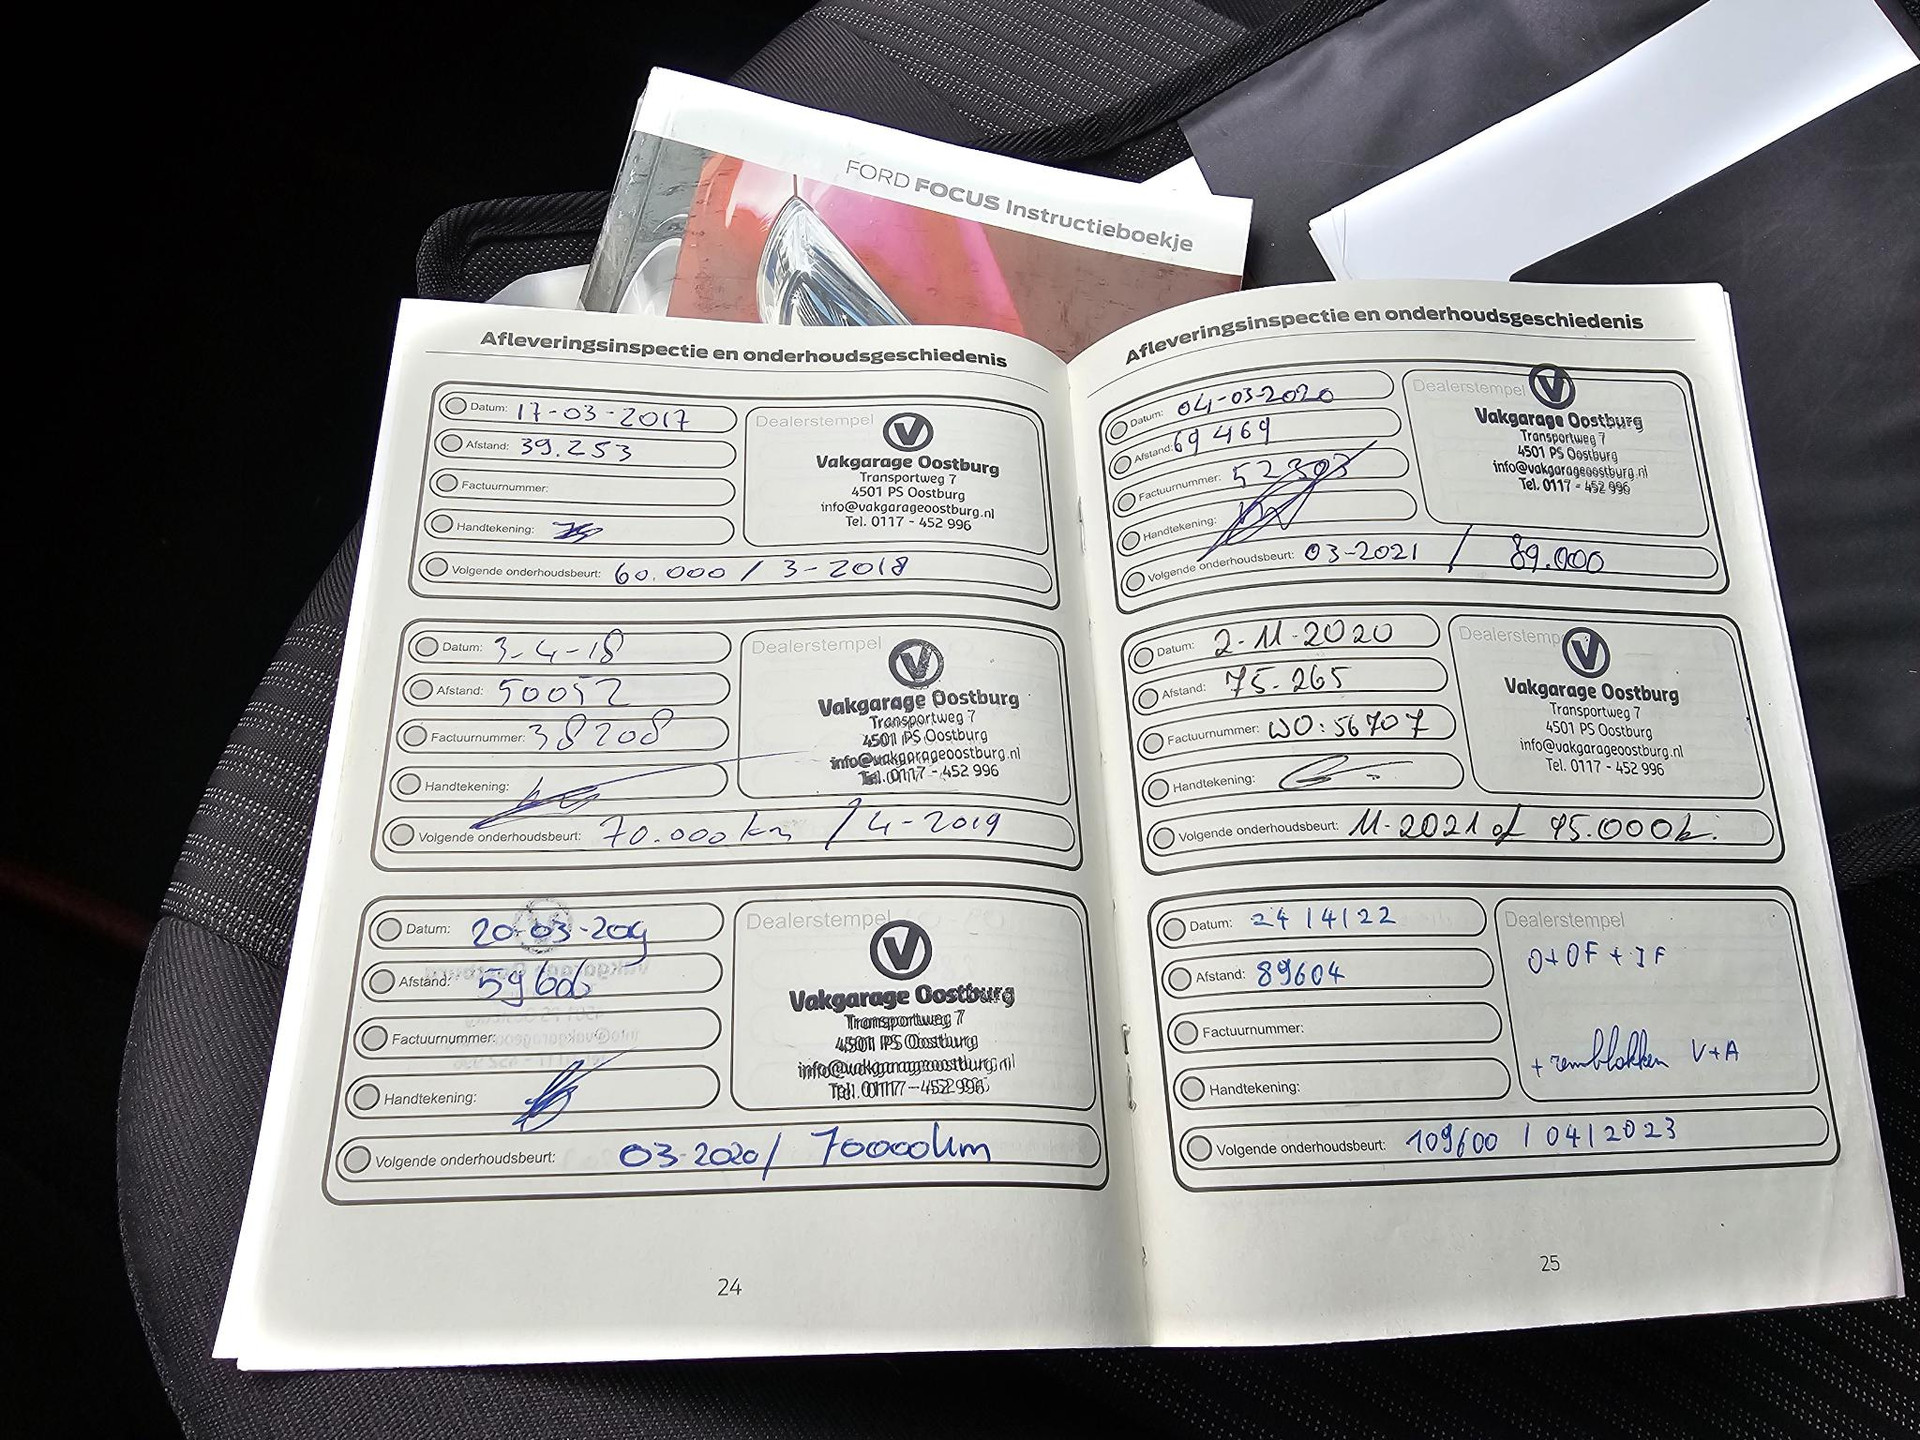 FORD FOCUS Instructieboekje
Afleveringsinspectie en onderhoudsgeschiedenis
Datum: 17-03-2017
Afstand: 39.253
Factuurnummer:
Handtekening:
Volgende onderhoudsbeurt: 60.000 / 3-2018
Dealerstempel
Vakgarage Oostburg
Transportweg 7
4501 PS Oostburg
info@vakgarageoostburg.nl
Tel. 0117 - 452 996
Datum: 3-4-18
Afstand: 50052
Factuurnummer: 38208
Handtekening:
Volgende onderhoudsbeurt: 70.000 km / 4-2019
Dealerstempel
Vakgarage Oostburg
Transportweg 7
4501 PS Oostburg
info@vakgarageoostburg.nl
Tel. 0117 - 452 996
Datum: 20-03-2019
Afstand: 59606
Factuurnummer:
Handtekening:
Volgende onderhoudsbeurt: 03-2020/ 70000km
Dealerstempel
Vakgarage Oostburg
Transportweg 7
4501 PS Oostburg
info@vakgarageoostburg.nl
Tel. 0117 - 452 996
24
Afleveringsinspectie en onderhoudsgeschiedenis
Datum: 04-03-2020
Afstand: 69469
Factuurnummer: 52303
Handtekening:
Volgende onderhoudsbeurt: 03-2021 / 89.000
Dealerstempel
Vakgarage Oostburg
Transportweg 7
4501 PS Oostburg
info@vakgarageoostburg.nl
Tel. 0117 - 452 996
Datum: 2-11-2020
Afstand: 75.265
Factuurnummer: WO: 56707
Handtekening:
Volgende onderhoudsbeurt: 11-2021 of 95.000k.
Dealerstempel
Vakgarage Oostburg
Transportweg 7
4501 PS Oostburg
info@vakgarageoostburg.nl
Tel. 0117 - 452 996
Datum: 24/4/22
Afstand: 89604
Factuurnummer:
Handtekening:
Volgende onderhoudsbeurt: 109600 / 04/2023
Dealerstempel
O+OF+IF
+ remblokken V+A
25